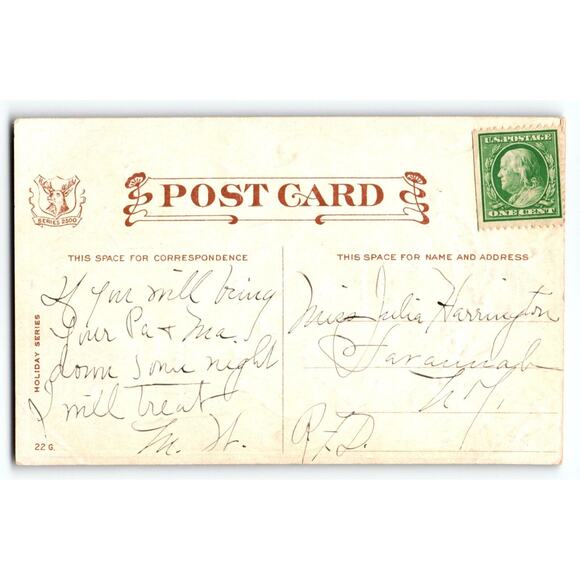 POST CARD
SERIES 2500
U.S. POSTAGE
ONE CENT
THIS SPACE FOR CORRESPONDENCE
THIS SPACE FOR NAME AND ADDRESS
HOLIDAY SERIES
22 G.
If you will bring
your Pa & Ma.
down some night
I will treat
M. H.
Miss Julia Harrington
Savannah
N.Y.
R.F.D.